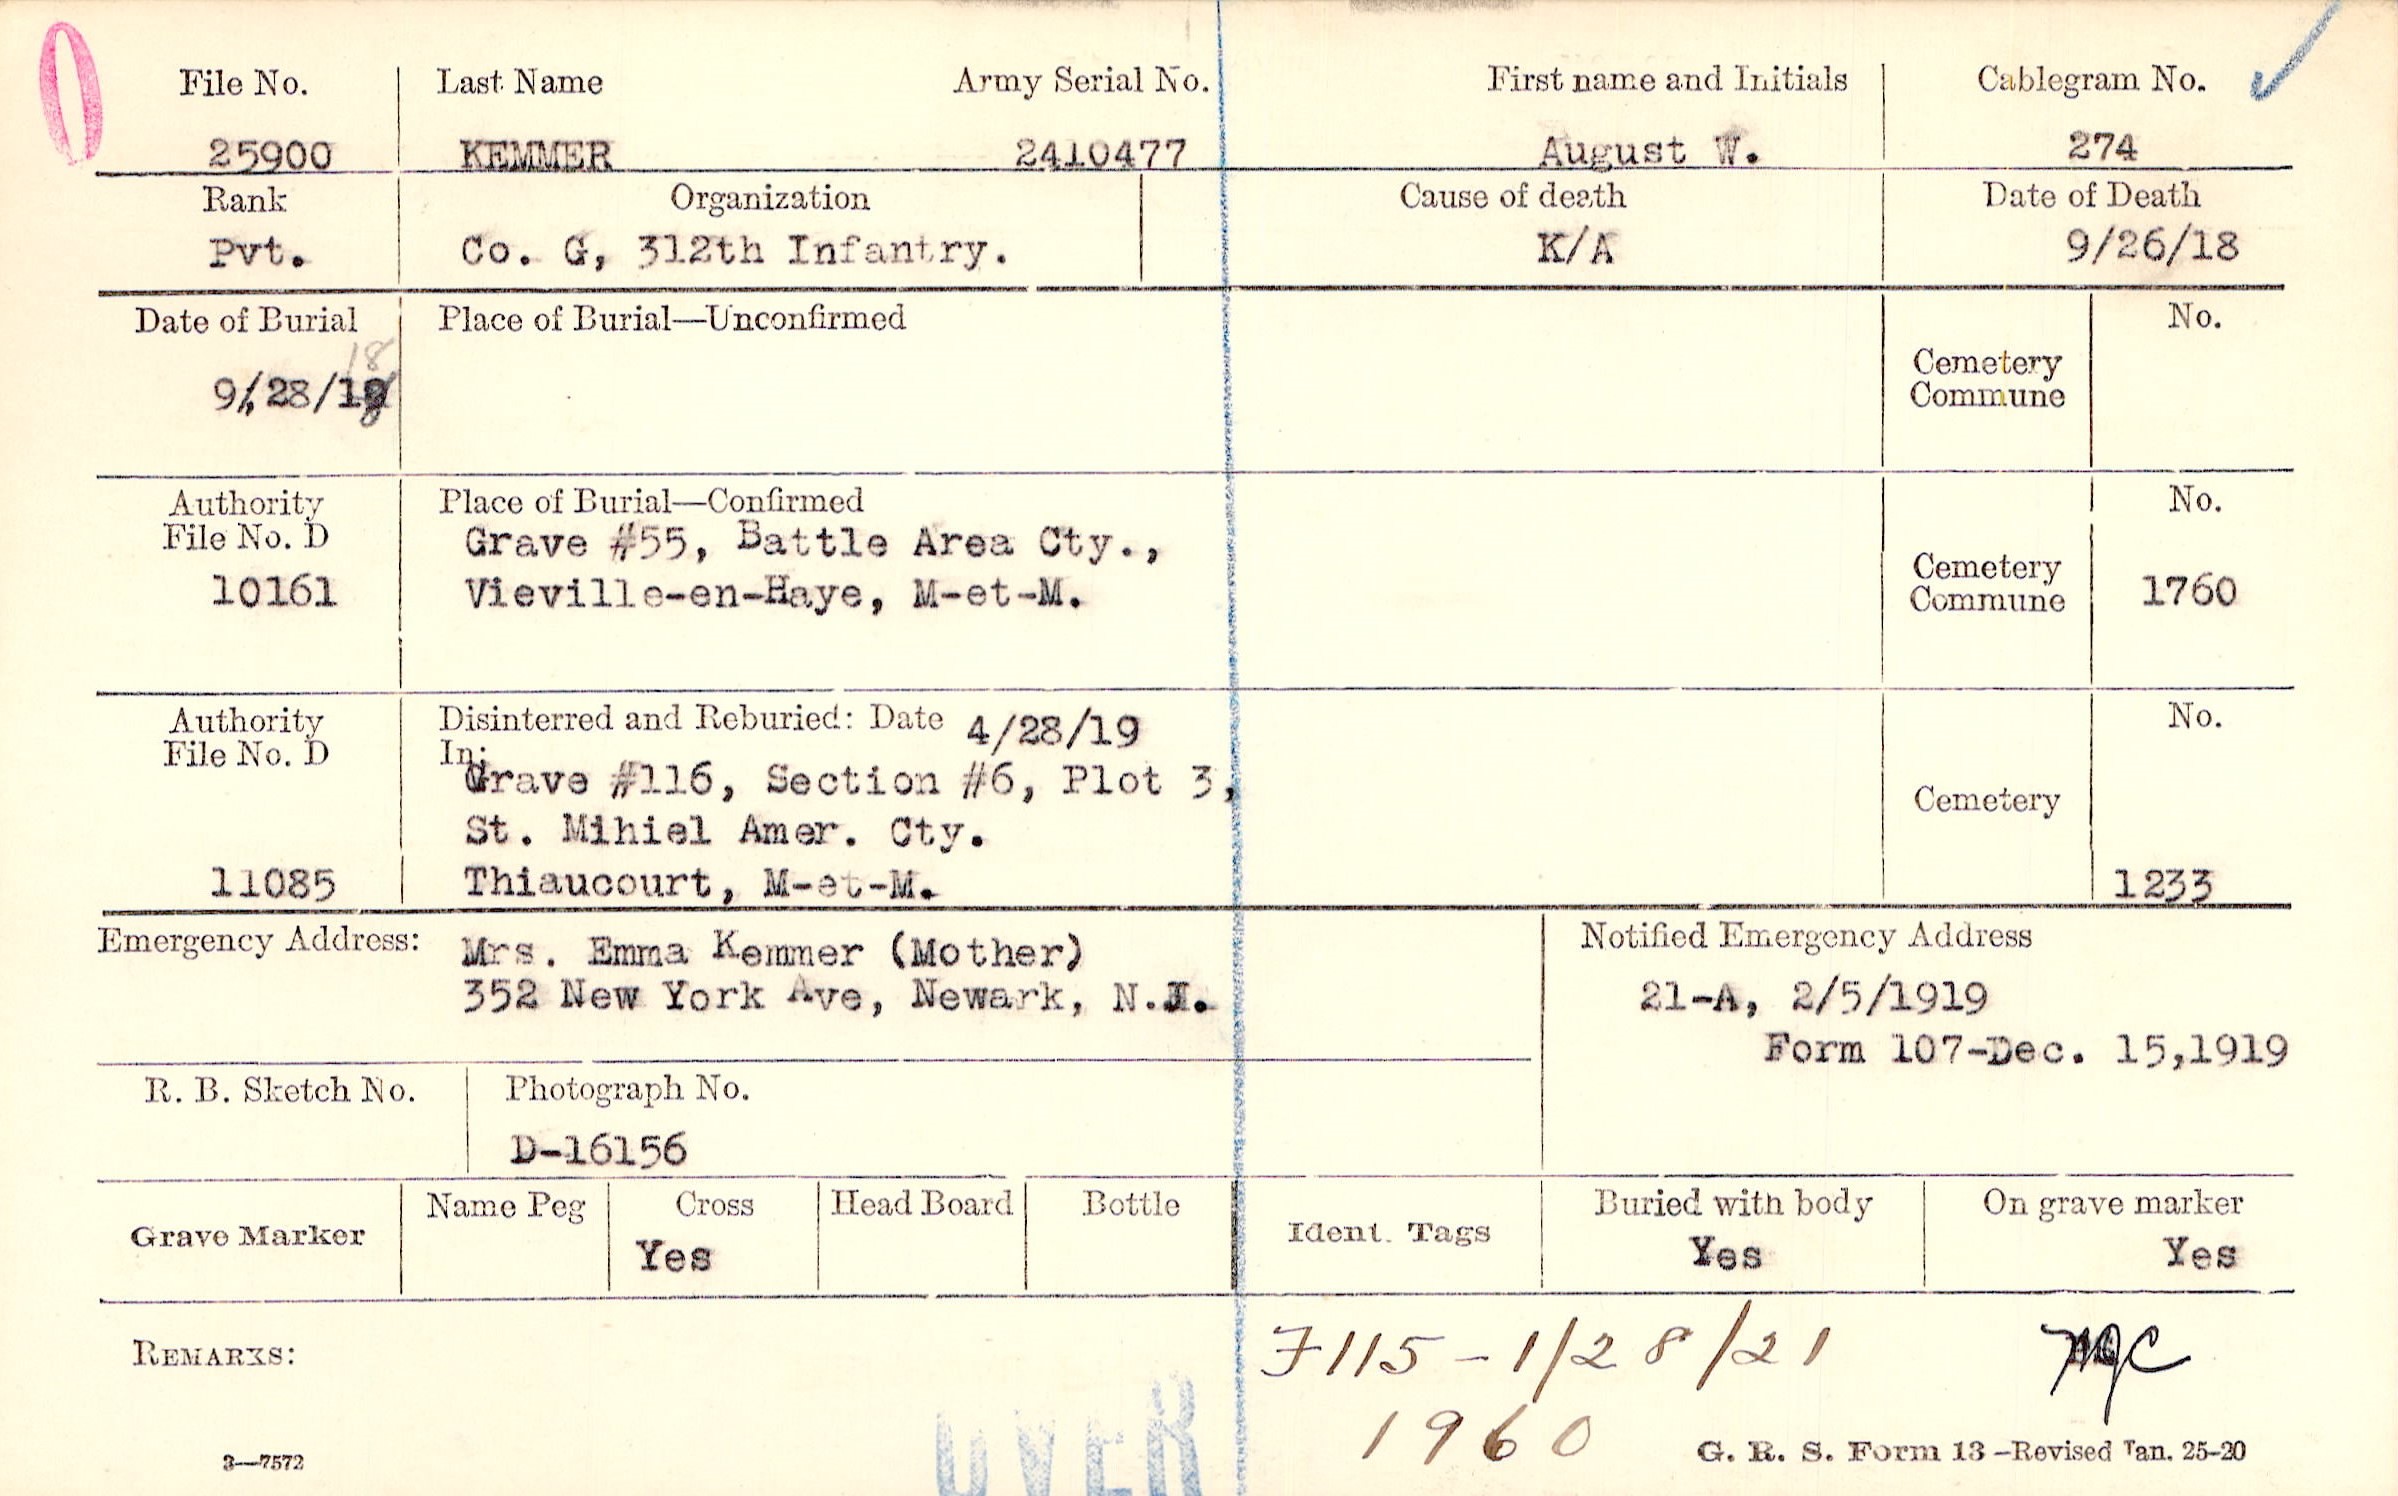 File No. Last Name Army Serial No. First name and Initials Cablegram No.
25900 KEMMER 2410477 August W. 274
Rank Organization Cause of death Date of Death
Pvt. Co. G, 312th Infantry. K/A 9/26/18
Date of Burial Place of Burial—Unconfirmed No.
18
9/28/18
Cemetery
Commune
Authority Place of Burial—Confirmed No.
File No. D Grave #55, Battle Area Cty.,
10161 Vieville-en-Haye, M-et-M.
Cemetery
Commune 1760
Authority Disinterred and Reburied: Date 4/28/19 No.
File No. D In:
Grave #116, Section #6, Plot 3,
Cemetery
St. Mihiel Amer. Cty.
11085 Thiaucourt, M-et-M. 1233
Emergency Address: Mrs. Emma Kemmer (Mother) Notified Emergency Address
352 New York Ave, Newark, N.J. 21-A, 2/5/1919
Form 107-Dec. 15,1919
R. B. Sketch No. Photograph No.
D-16156
Grave Marker Name Peg Cross Head Board Bottle Ident. Tags Buried with body On grave marker
Yes Yes Yes
REMARKS: F115-1/28/21
1960
OVER
3—7572 G. R. S. Form 13-Revised Jan. 25-20